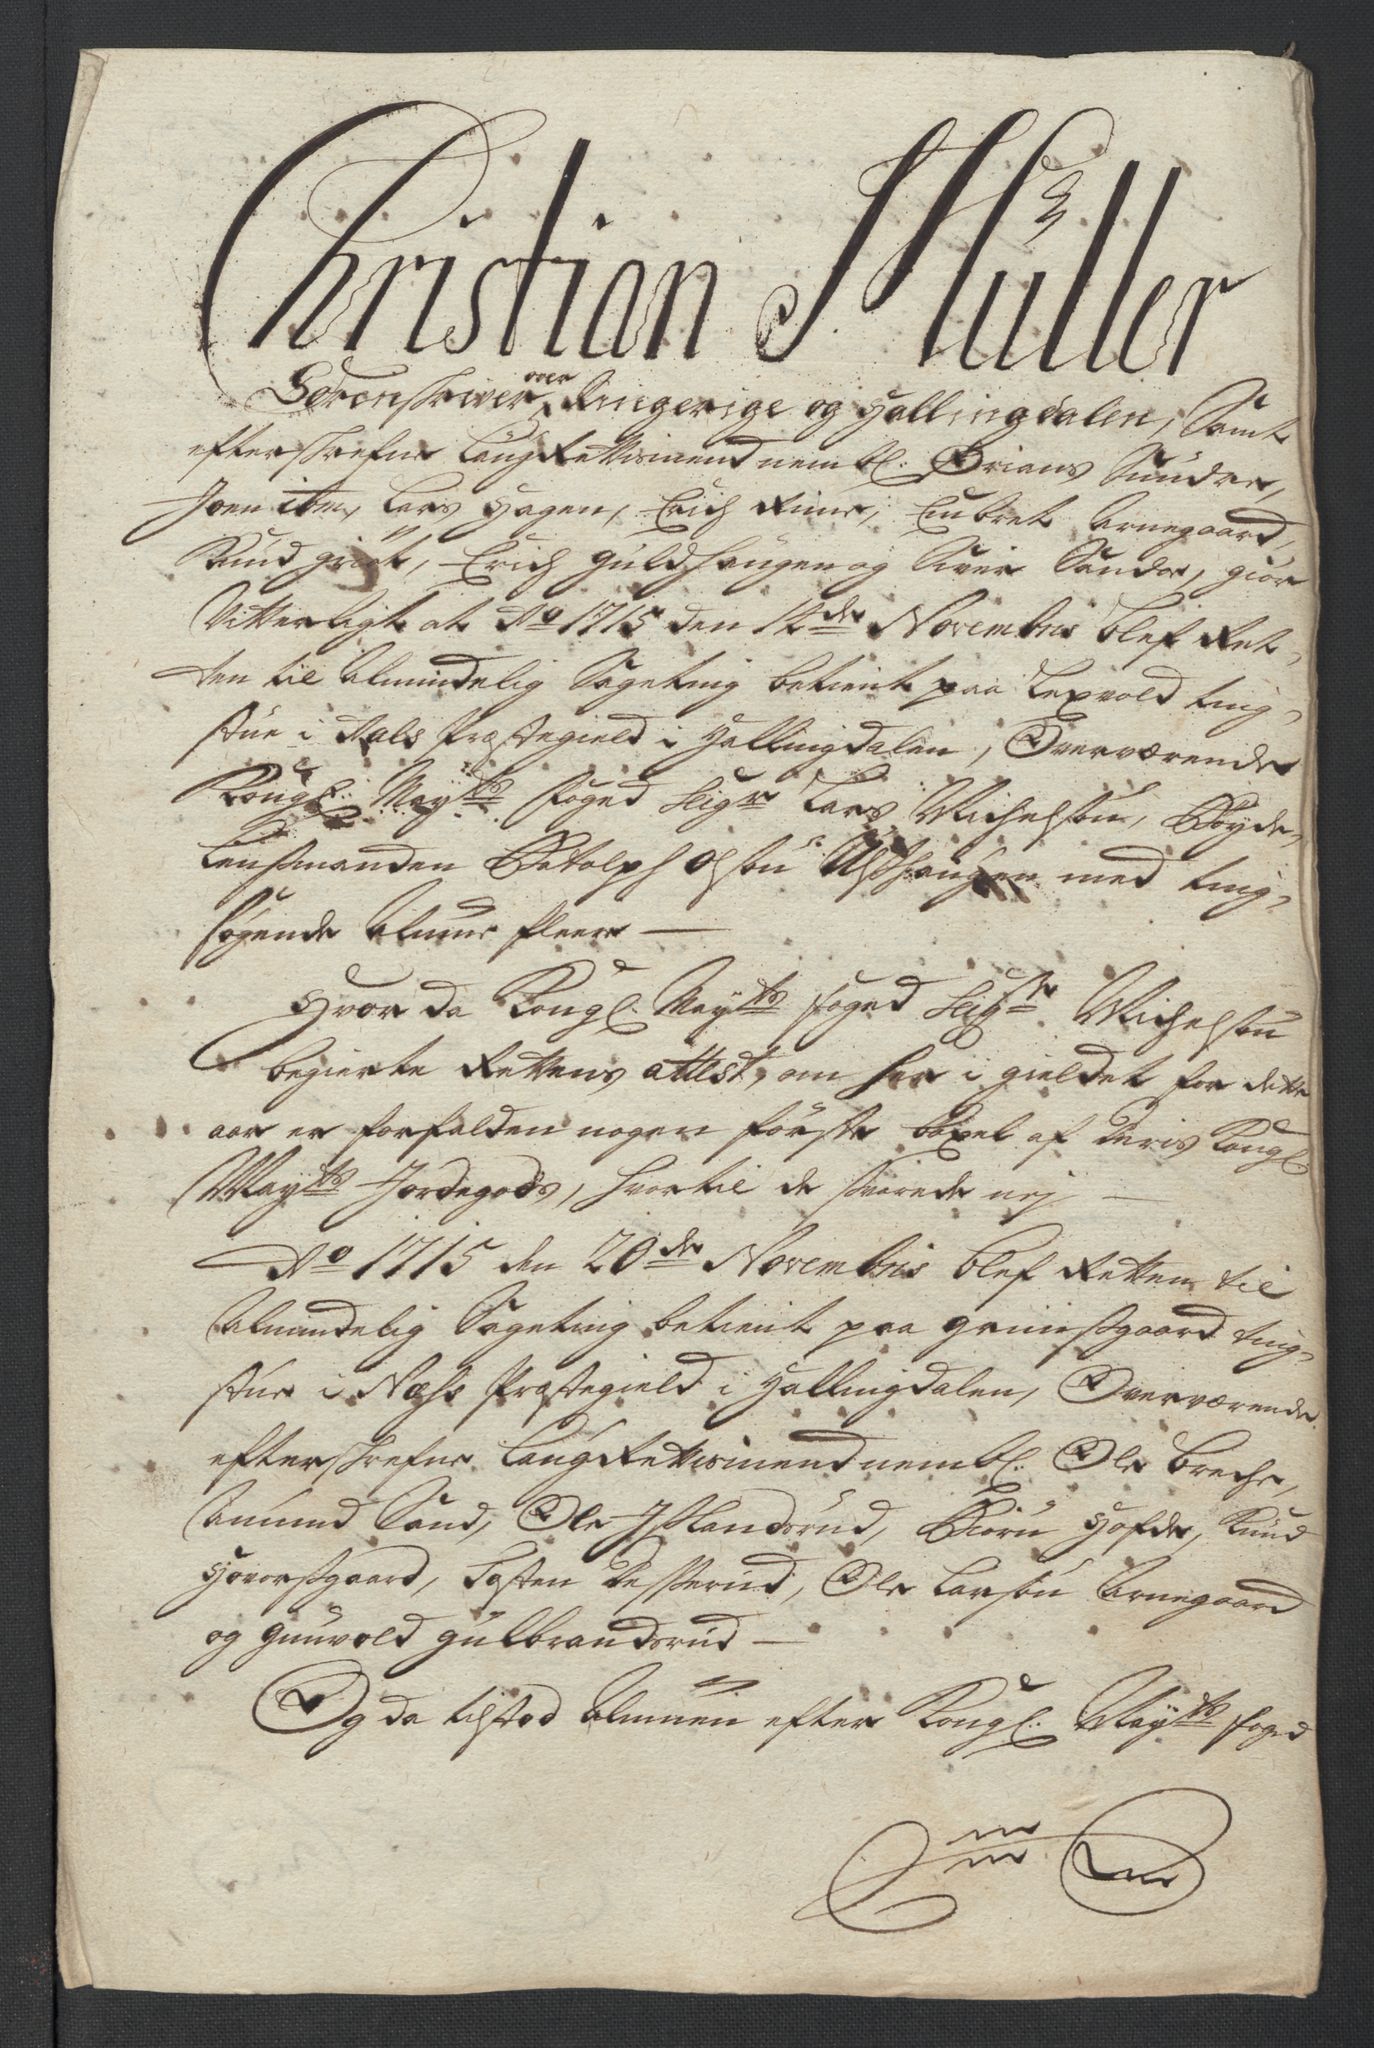 Christian Müller
Sorenskriver over Ringerige og Hallingdalen, Samt
efterskrefne LaugRettismend nembl: Brians Sundre,
Joen ibm, Lars Hagen, Erich Rime, Embret Arnegaard,
Knud, Erich Guldhaugen og Siver Sander, giør
Vitterligt at Ao 1715 den 14de Novembris blef Ret-
ten til Almindelig Sageting betient paa Lexvold ting-
stue i Aals Præstegield i Hallingdalen, Overværende
Kongl: Mayts foged Seigr Lars Michelsøn, Bøyde-
Lensmanden Botolph Olsøn Ulshaugen med ting-
søgende Almue fleere —
Hvor da Kongl. Mayts foged Seigr Michelsøn
begierte Rettens attest, om her i gieldet for dette
aar er forfalden nogen første bøxel af deris Kongl
Mayts Jordegods, hvortil de svarede nej —
Ao 1715 den 20de Novembris blef Retten til
Almindelig Sageting betient paa Grimsgaard ting-
stue i Næss Præstegield i Hallingdalen, Overværende
efterskrefne LaugRettismend nembl. Ole Breche,
Amund Sand, Ole Islandsrud, Biørn Hofde, Knud
Hovorsgaard, Tosten, Ole Larsøn Arnegaard
og Gunvold Gulbrandsrud —
Og da tilstod Almuen efter Kongl. Mayts foged